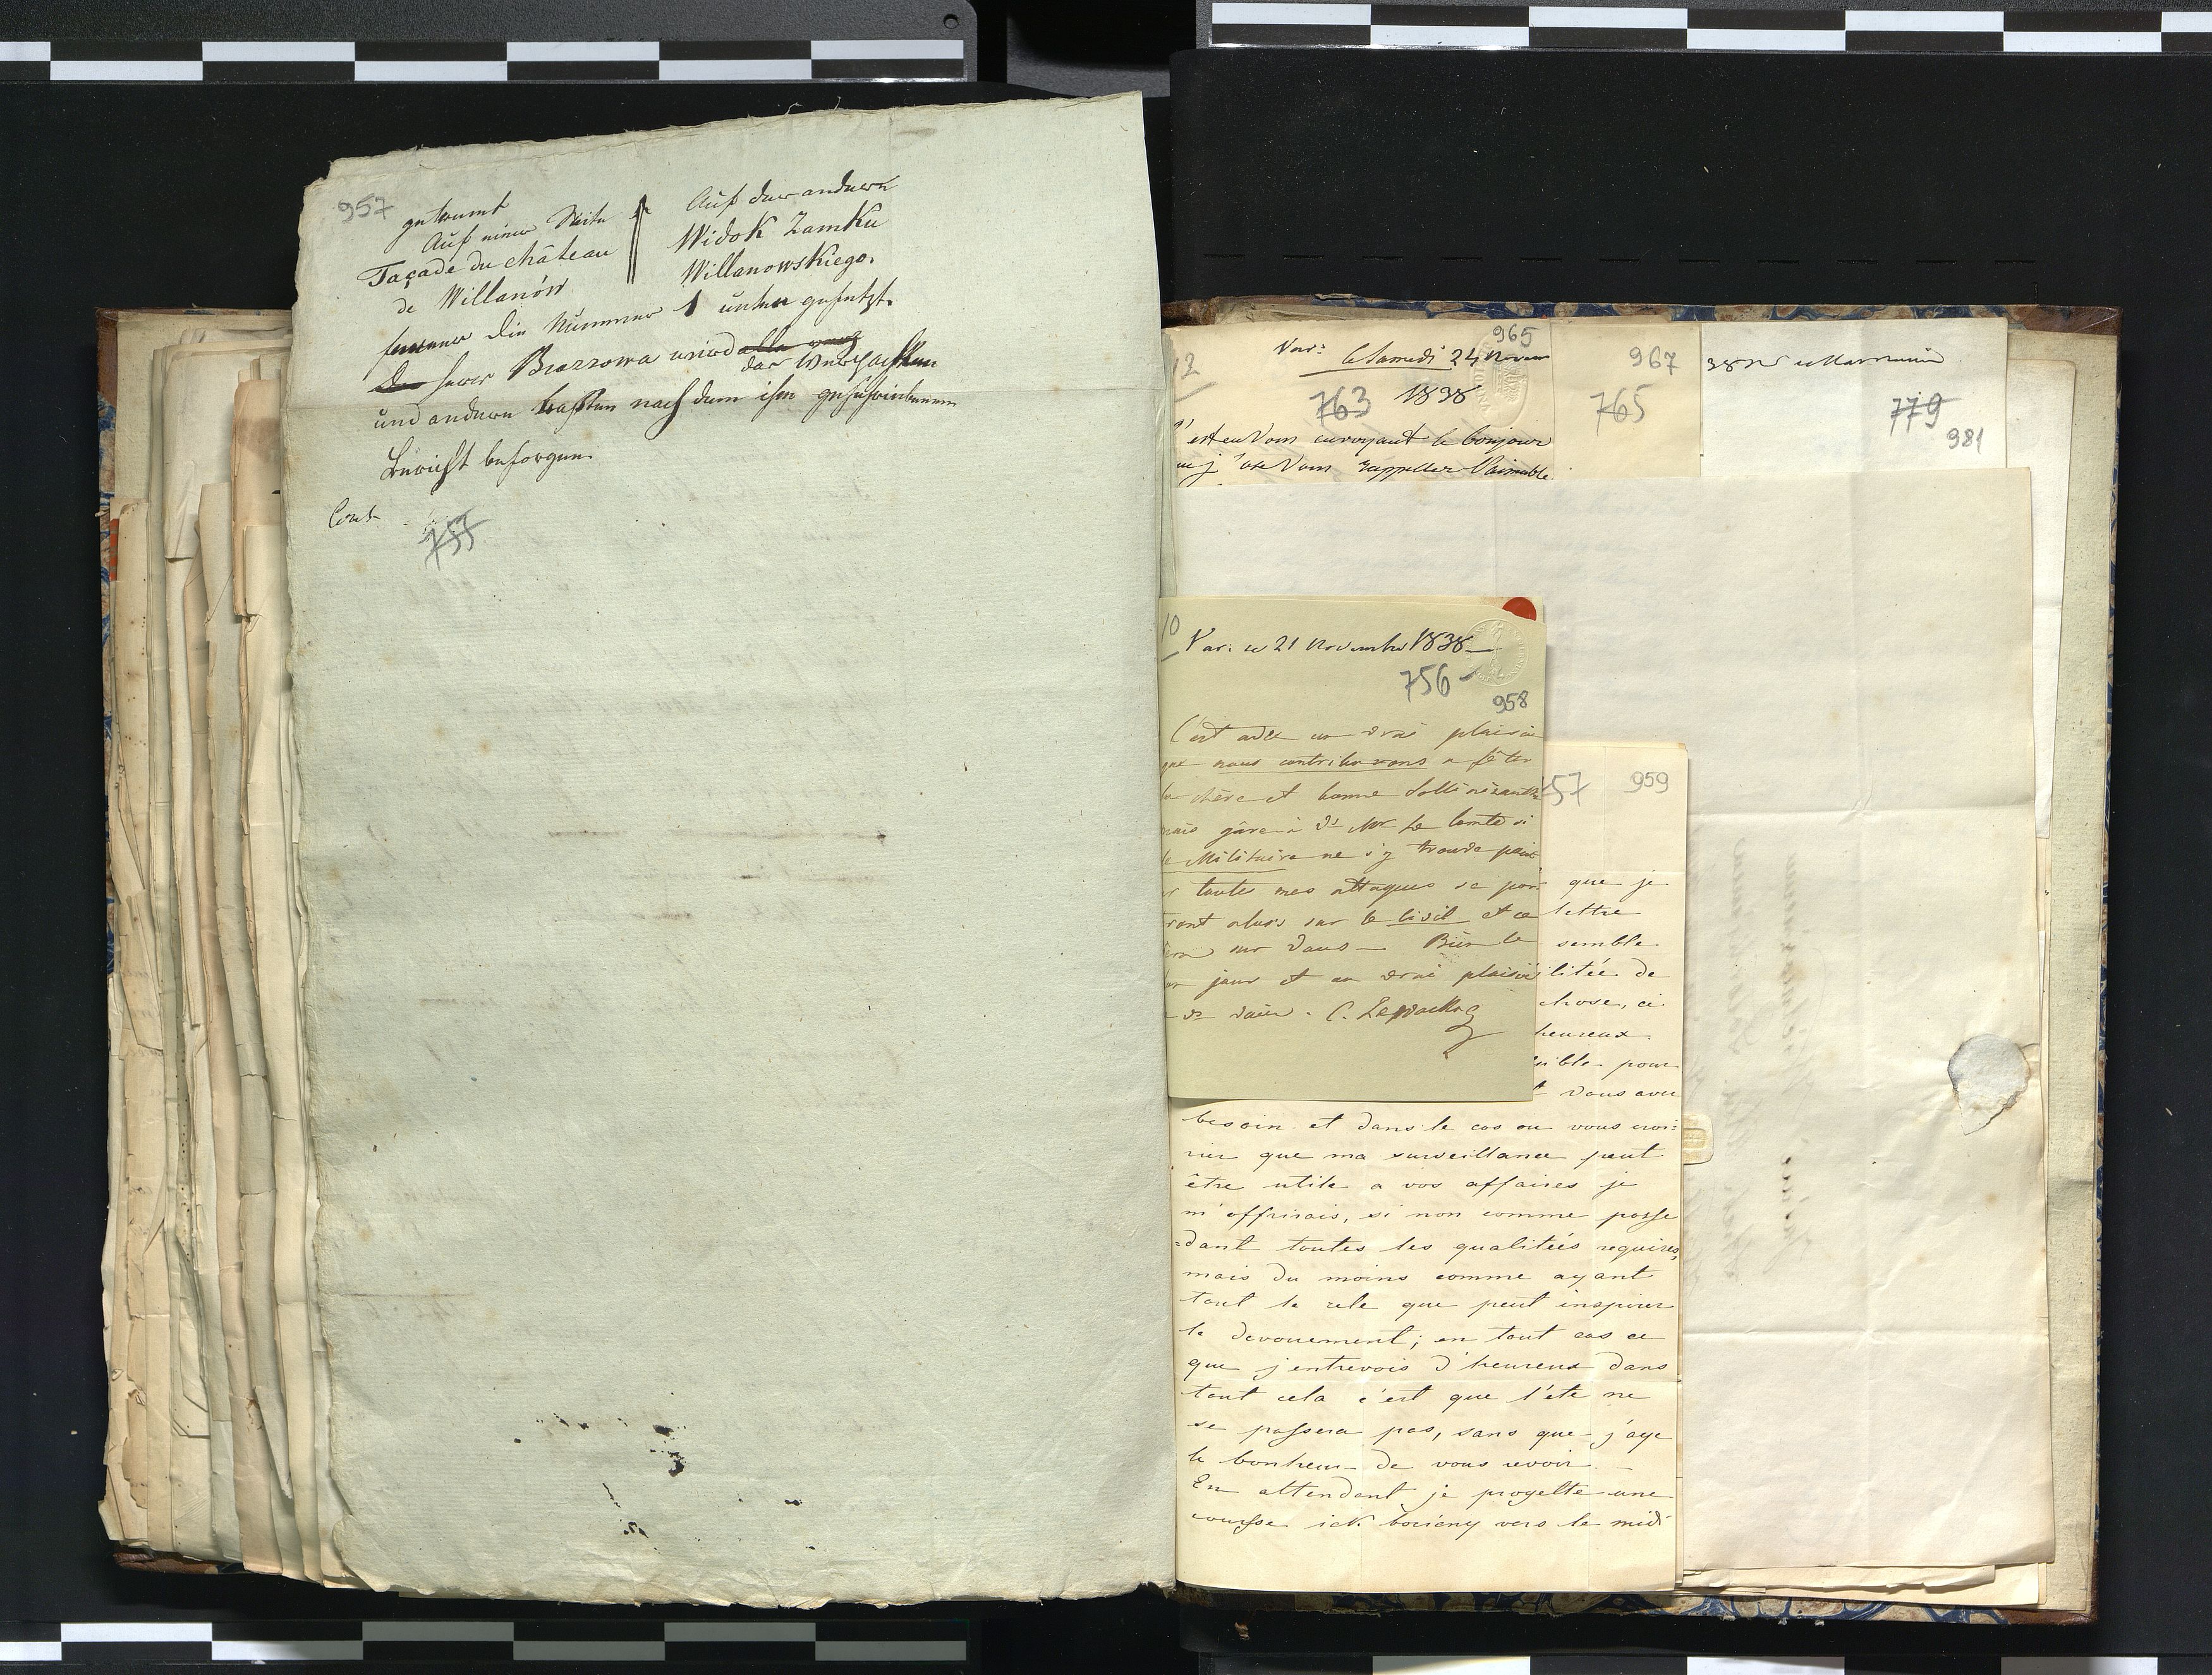 957
getrennt
Auf einer Seite
Façade du château
de Willanów
Auf der andern
Widok Zamku
Willanowskiego.
ferner die Nummer 1 unten gesetzt.
Der Herr Brzozowa wird alle
der
und andern Kosten nach dem ihm geschriebenen
Bericht besorgen.
Cont
755
12
Var: le Samedi 24 Novem
965
763 1838
C'est en Vous envoyant le bonjour
que j'ose Vous rappeller l'aimable
967
765
779
981
10
Var: ce 21 Novembre 1838
756
958
C'est avec un vrai plaisir
que nous contriburons a fêter
la chère et bonne
mais gâre à Vs Mr Le Comte si
le Militaire ne s'y trouve point
car toutes mes attaques se por
teront alors sur le Civil et ce
sera sur Vous — Bien le
bon jour et au vrai plaisir
de vs voir. C.
757
959
que je
lettre
semble
ilitée de
chose, ci
heureux
sible pour
t vous avez
besoin et dans le cas ou vous croi=
riez que ma surveillance peut
être utile a vos affaires je
m'offrirais, si non comme posse
=dant toutes les qualitées requises,
mais du moins comme ayant
tout le zele que peut inspirer
le devouement; en tout cas ce
que j'entrevois d'heureux dans
tout cela c'est que l'été ne
se passera pas, sans que j'aye
le bonheur de vous revoir. —
En attendant je projette une
course vers le midi